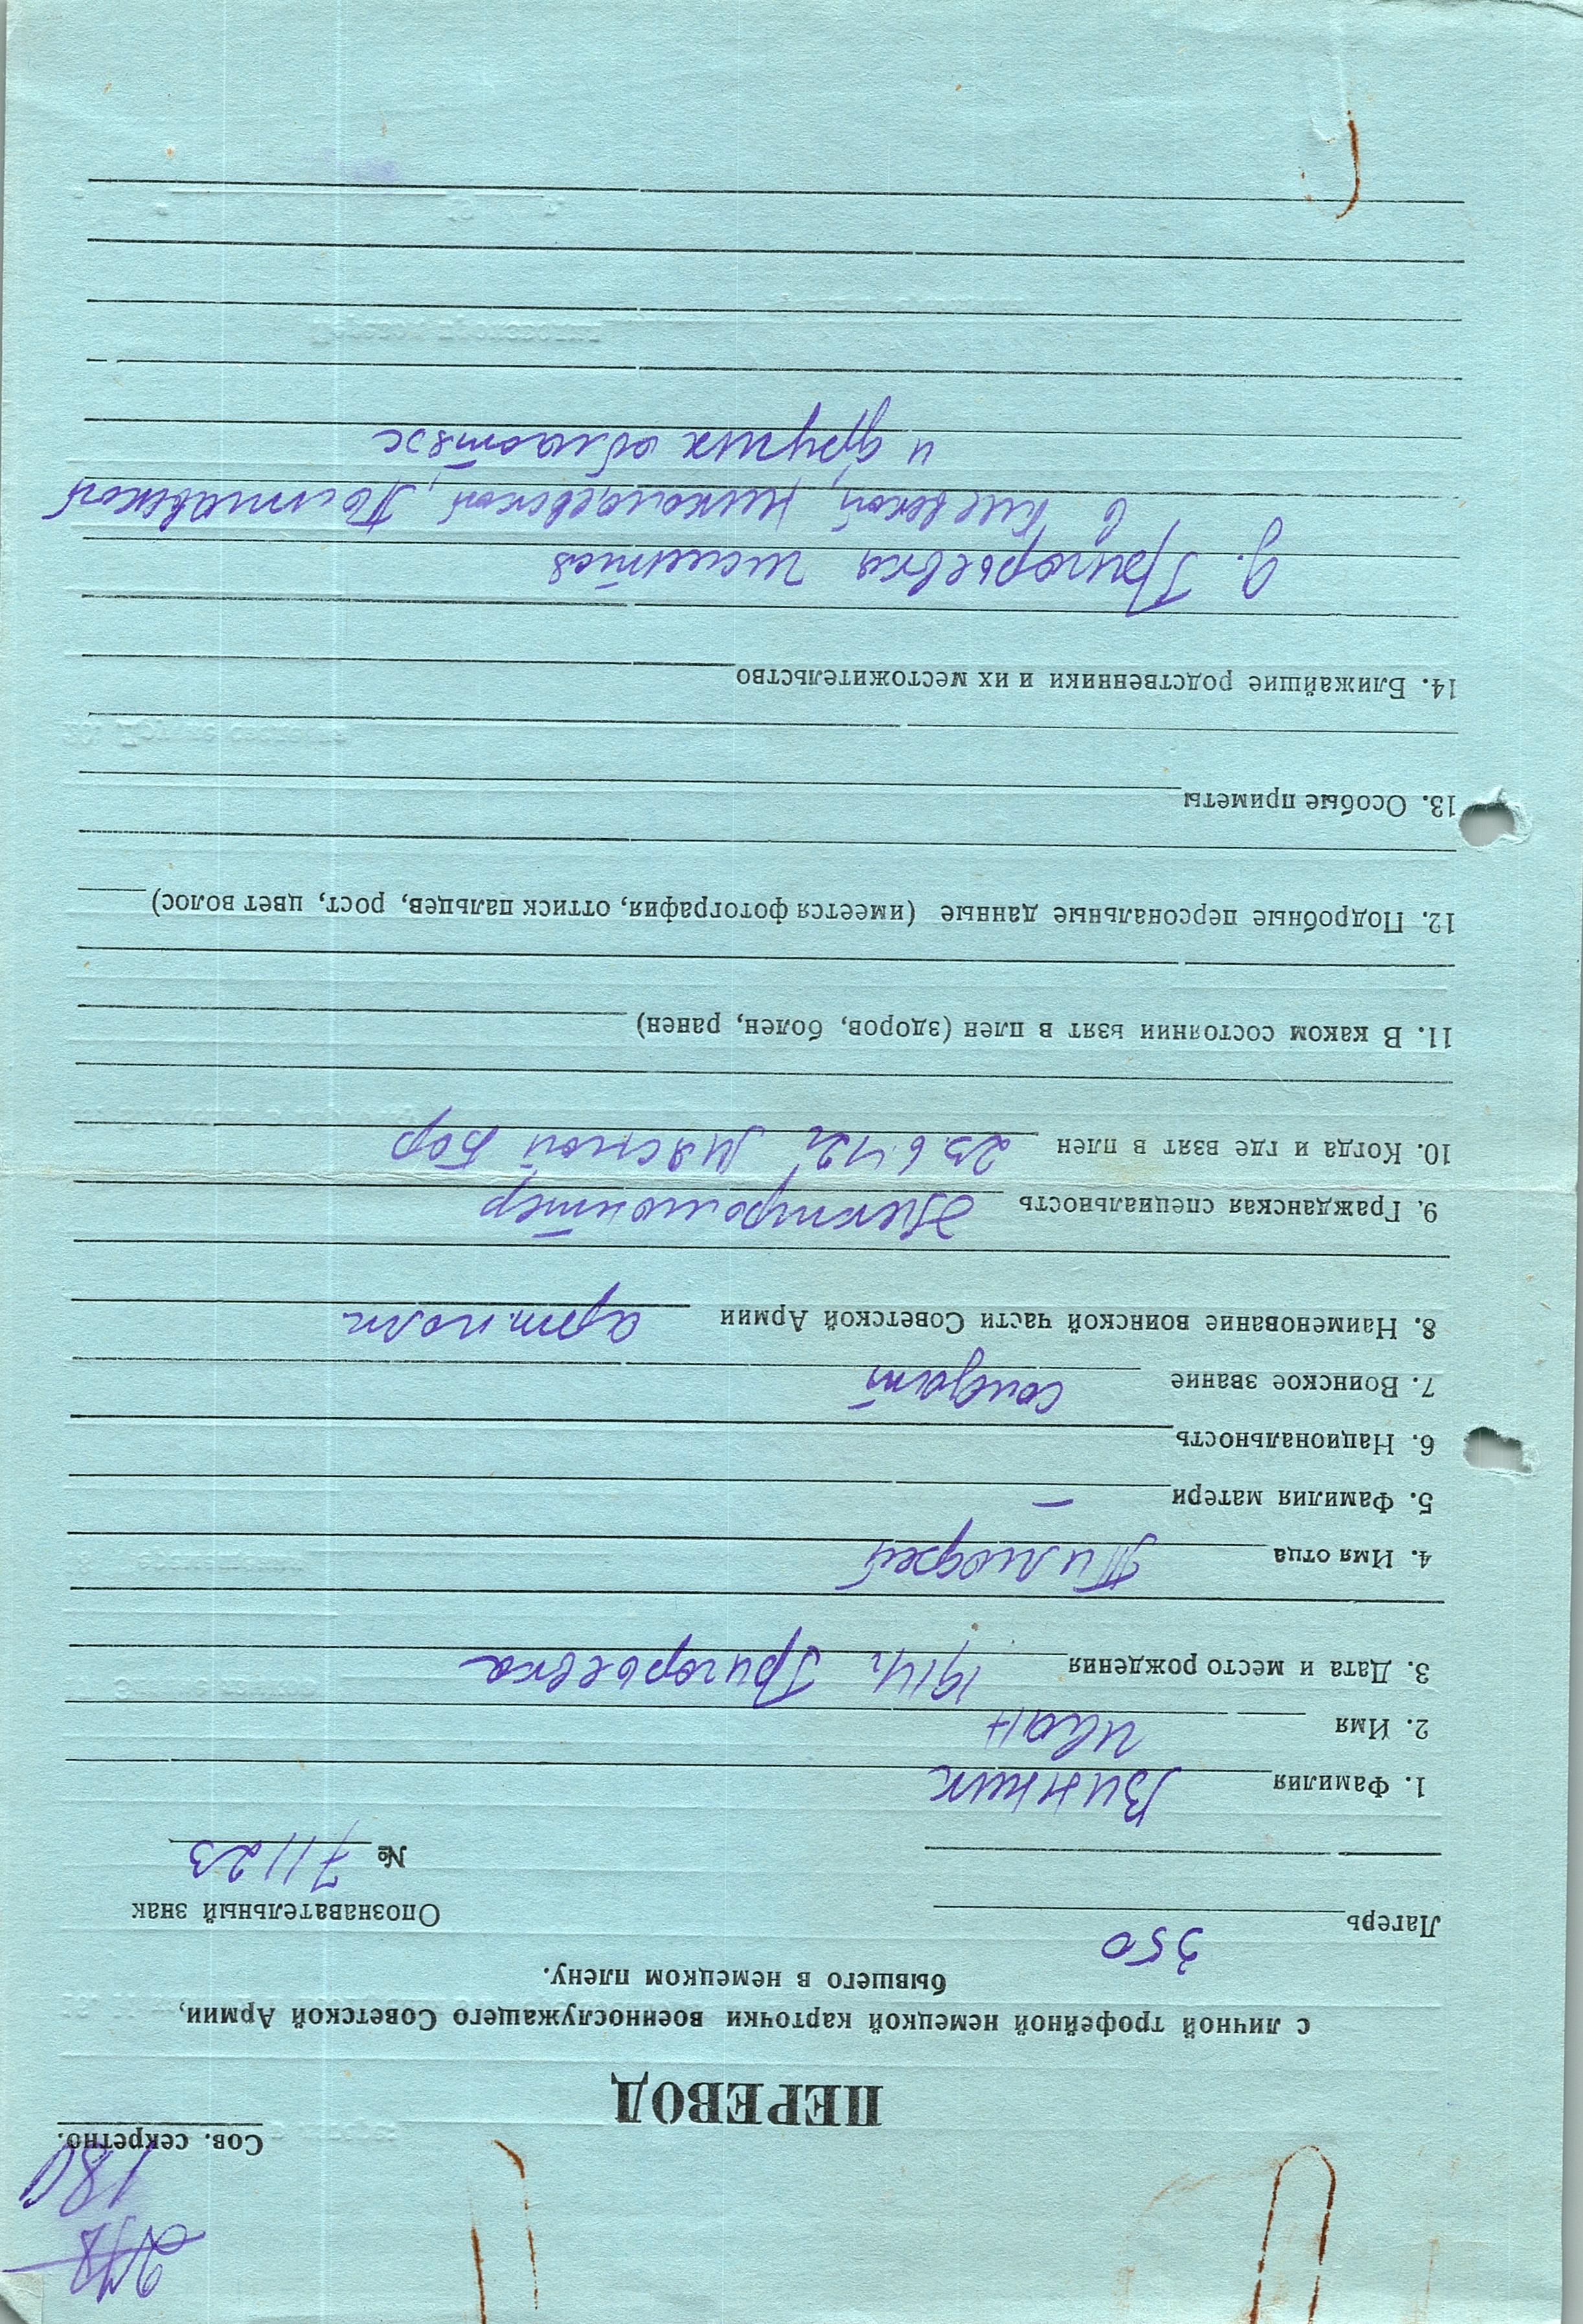 Сов. секретно.
180
ПЕРЕВОД
с личной трофейной немецкой карточки военнослужащего Советской Армии,
бывшего в немецком плену.
Лагерь 350 Опознавательный знак
№ 71123
1. Фамилия Винник
2. Имя Иван
3. Дата и место рождения 1914г. Григорьевка
4. Имя отца Тимофей
5. Фамилия матери —
6. Национальность
7. Воинское звание солдат
8. Наименование воинской части Советской Армии арт.полк
9. Гражданская специальность Электромонтер
10. Когда и где взят в плен 23.6.42г Мясной Бор
11. В каком состоянии взят в плен (здоров, болен, ранен)
12. Подробные персональные данные (имеется фотография, оттиск пальцев, рост, цвет волос)
13. Особые приметы
14. Ближайшие родственники и их местожительство
д. Григорьевка имеется
в Киевской, Николаевской, Полтавской
и других областях